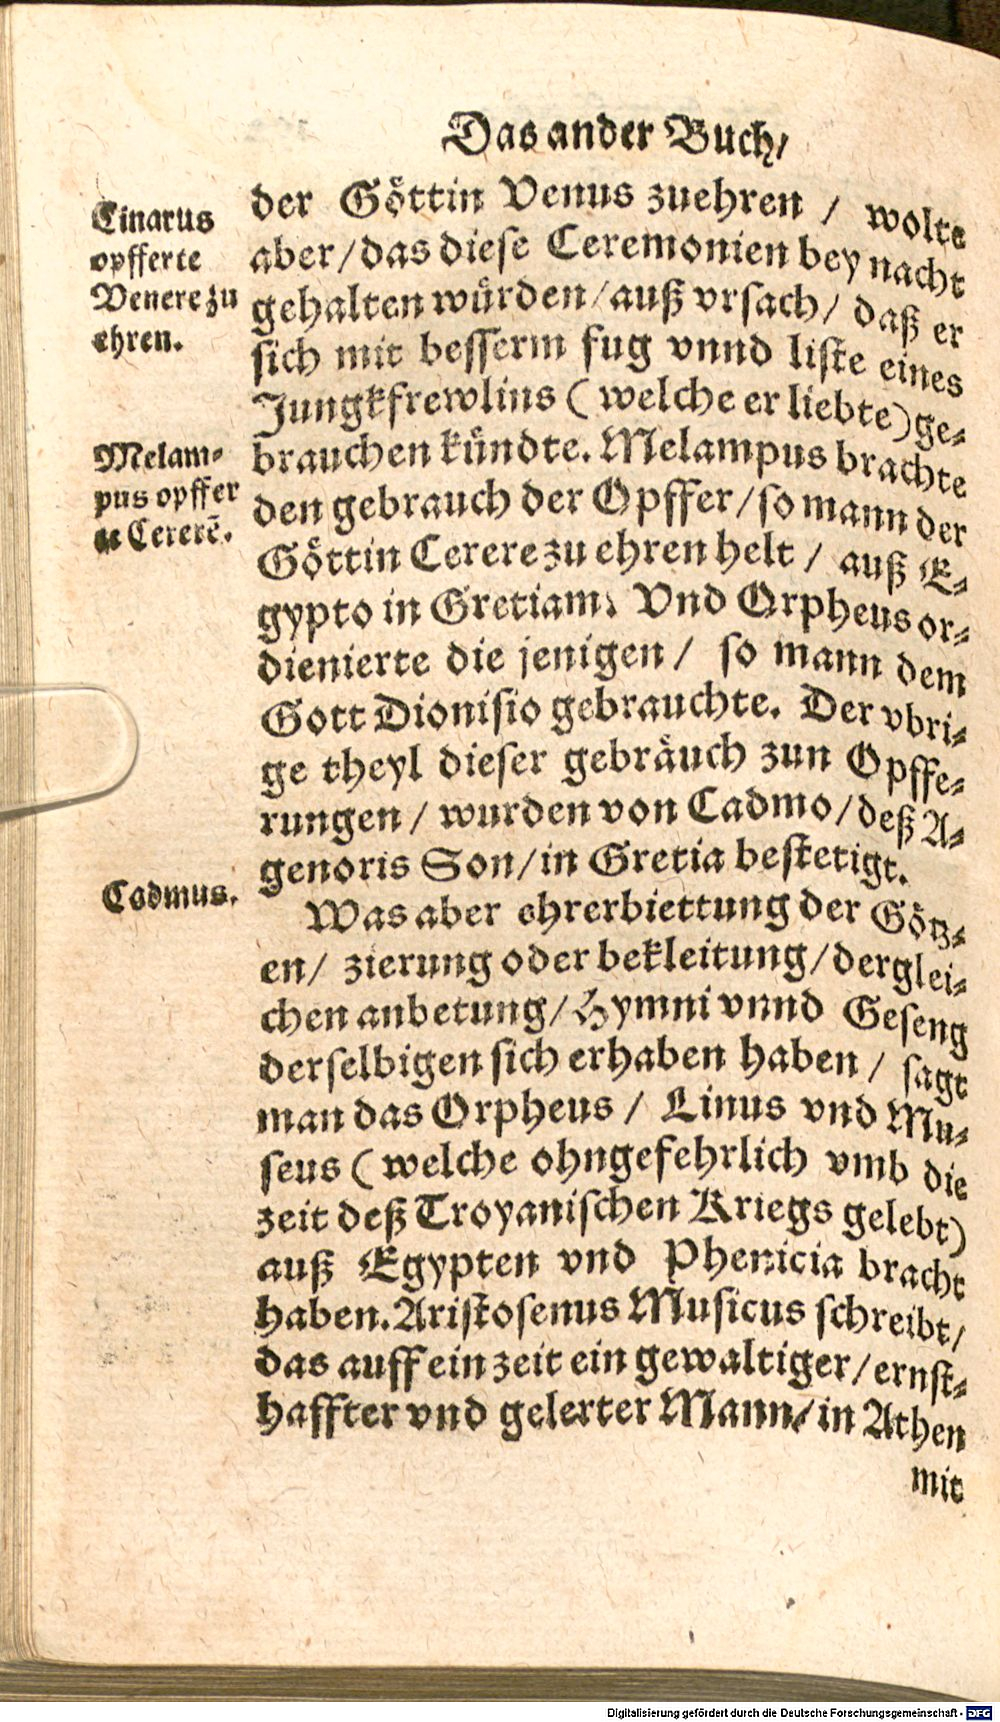 Das ander Buch/
der Göttin Venus zuehren / wolte
aber/das diese Ceremonien bey nacht
gehalten würden/auß vrsach/ daß er
sich mit besserm fug vnnd liste eines
Jungkfrewlins ( welche er liebte) ge-
brauchen kündte. Melampus brachte
den gebrauch der Opffer/so mann der
Göttin Cerere zu ehren helt / auß E-
gypto in Gretiam. Vnd Orpheus or-
dienierte die jenigen / so mann dem
Gott Dionisio gebrauchte. Der vbri-
ge theyl dieser gebräuch zun Opffe-
rungen / wurden von Cadmo/deß A-
genoris Son/in Gretia bestetigt.
Was aber ehrerbiettung der Götz-
en/ zierung oder bekleitung/derglei-
chen anbetung/Hymni vnnd Geseng
derselbigen sich erhaben haben / sagt
man das Orpheus / Linus vnd Mu-
seus ( welche ohngefehrlich vmb die
zeit deß Troyanischen Kriegs gelebt)
auß Egypten vnd Phenicia bracht
haben. Aristosenus Musicus schreibt/
das auff ein zeit ein gewaltiger/ernst-
haffter vnd gelerter Mann/in Athen
mit
Cinarus
opfferte
Venere zu
ehren.
Melam-
pus opffer
Cererē.
Cadmus.
Digitalisierung gefördert durch die Deutsche Forschungsgemeinschaft - DFG